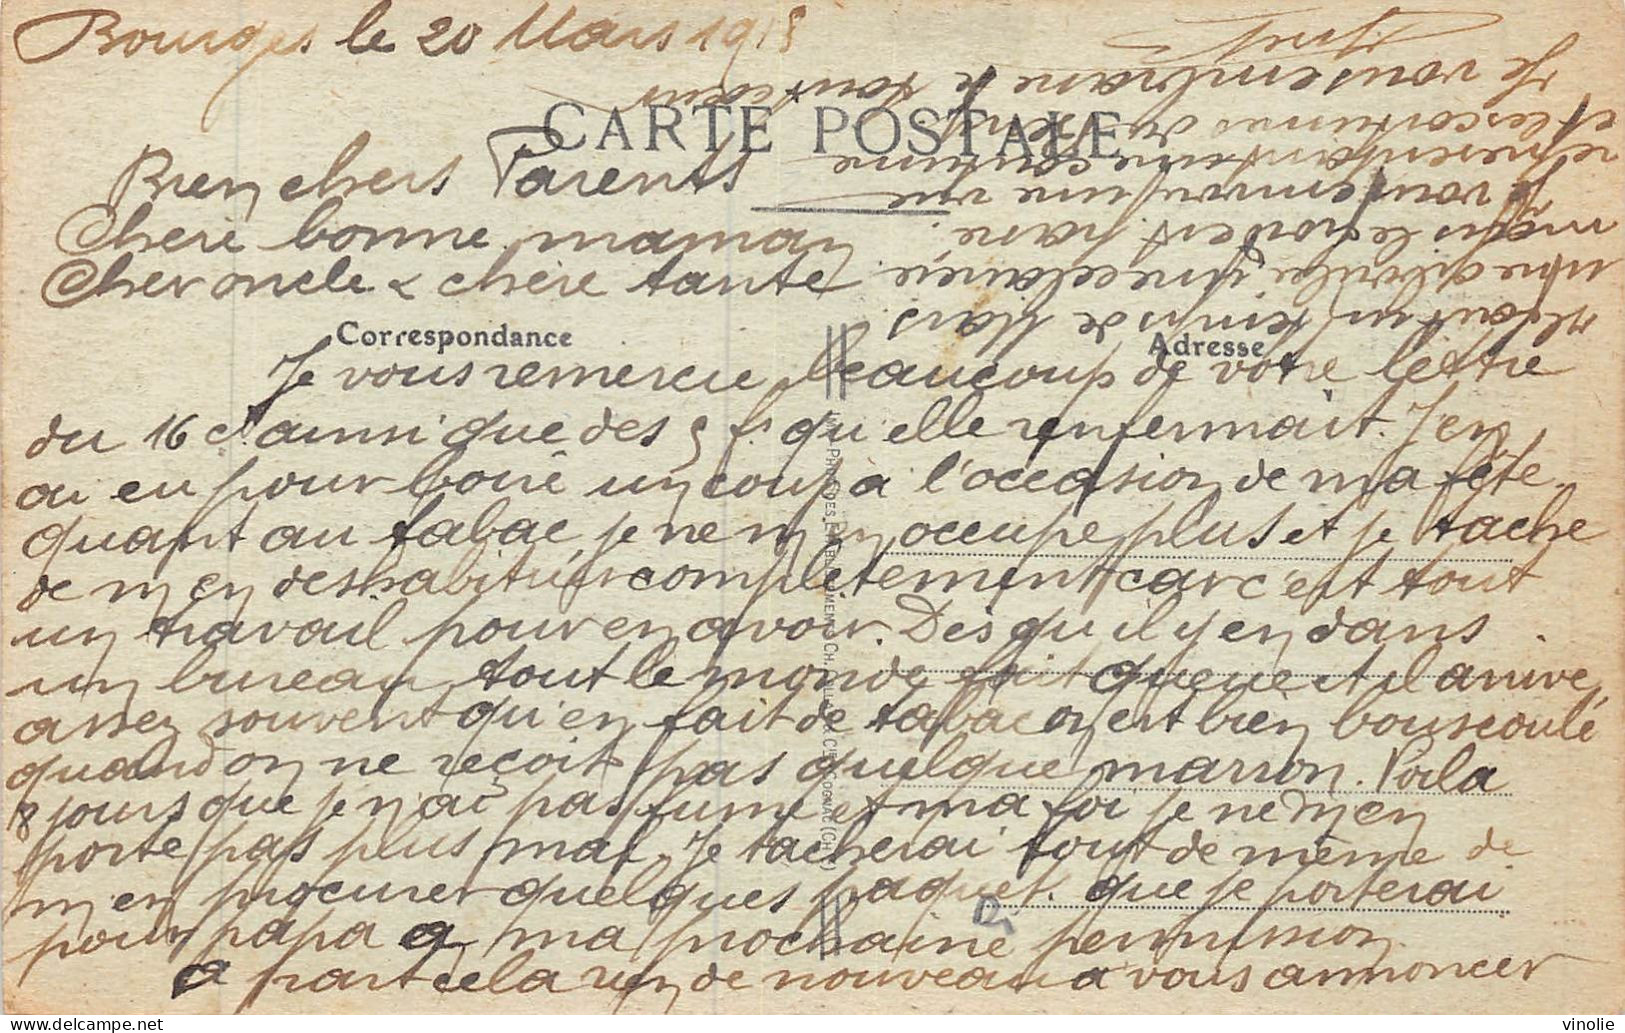 Bourges le 20 Mars 1918
CARTE POSTALE
Bien chers Parents
Chere bonne maman
Cher oncle & chère tante
Correspondance
Adresse
Je vous remercie beaucoup de votre lettre
du 16 ct ainsi que des 5 f. qu'elle renfermait. J'en
ai eu pour boire un coup a l'occasion de ma fête.
quant au tabac je ne m'en occupe plus et je tache
de m'en deshabituer complètement car c'est tout
un travail pour en avoir. Dès qu'il y en dans
un bureau tout le monde fait queue et il arrive
assez souvent qu'en fait de tabac on est bien bousculé
quand on ne reçoit pas quelque marron. Voila
8 jours que je n'ai pas fumé et ma foi je ne m'en
porte pas plus mal. Je tacherai tout de même de
m'en procurer quelques paquet. que je porterai
pour papa a ma prochaine permission
a part cela rien de nouveau a vous annoncer
il fait un temps de Mars
une giboulée, une eclaircie
mais le poids passe.
Je vous envoie une vue
representant une
et les costumes du
Je vous embrasse de tout cœur
vinolie